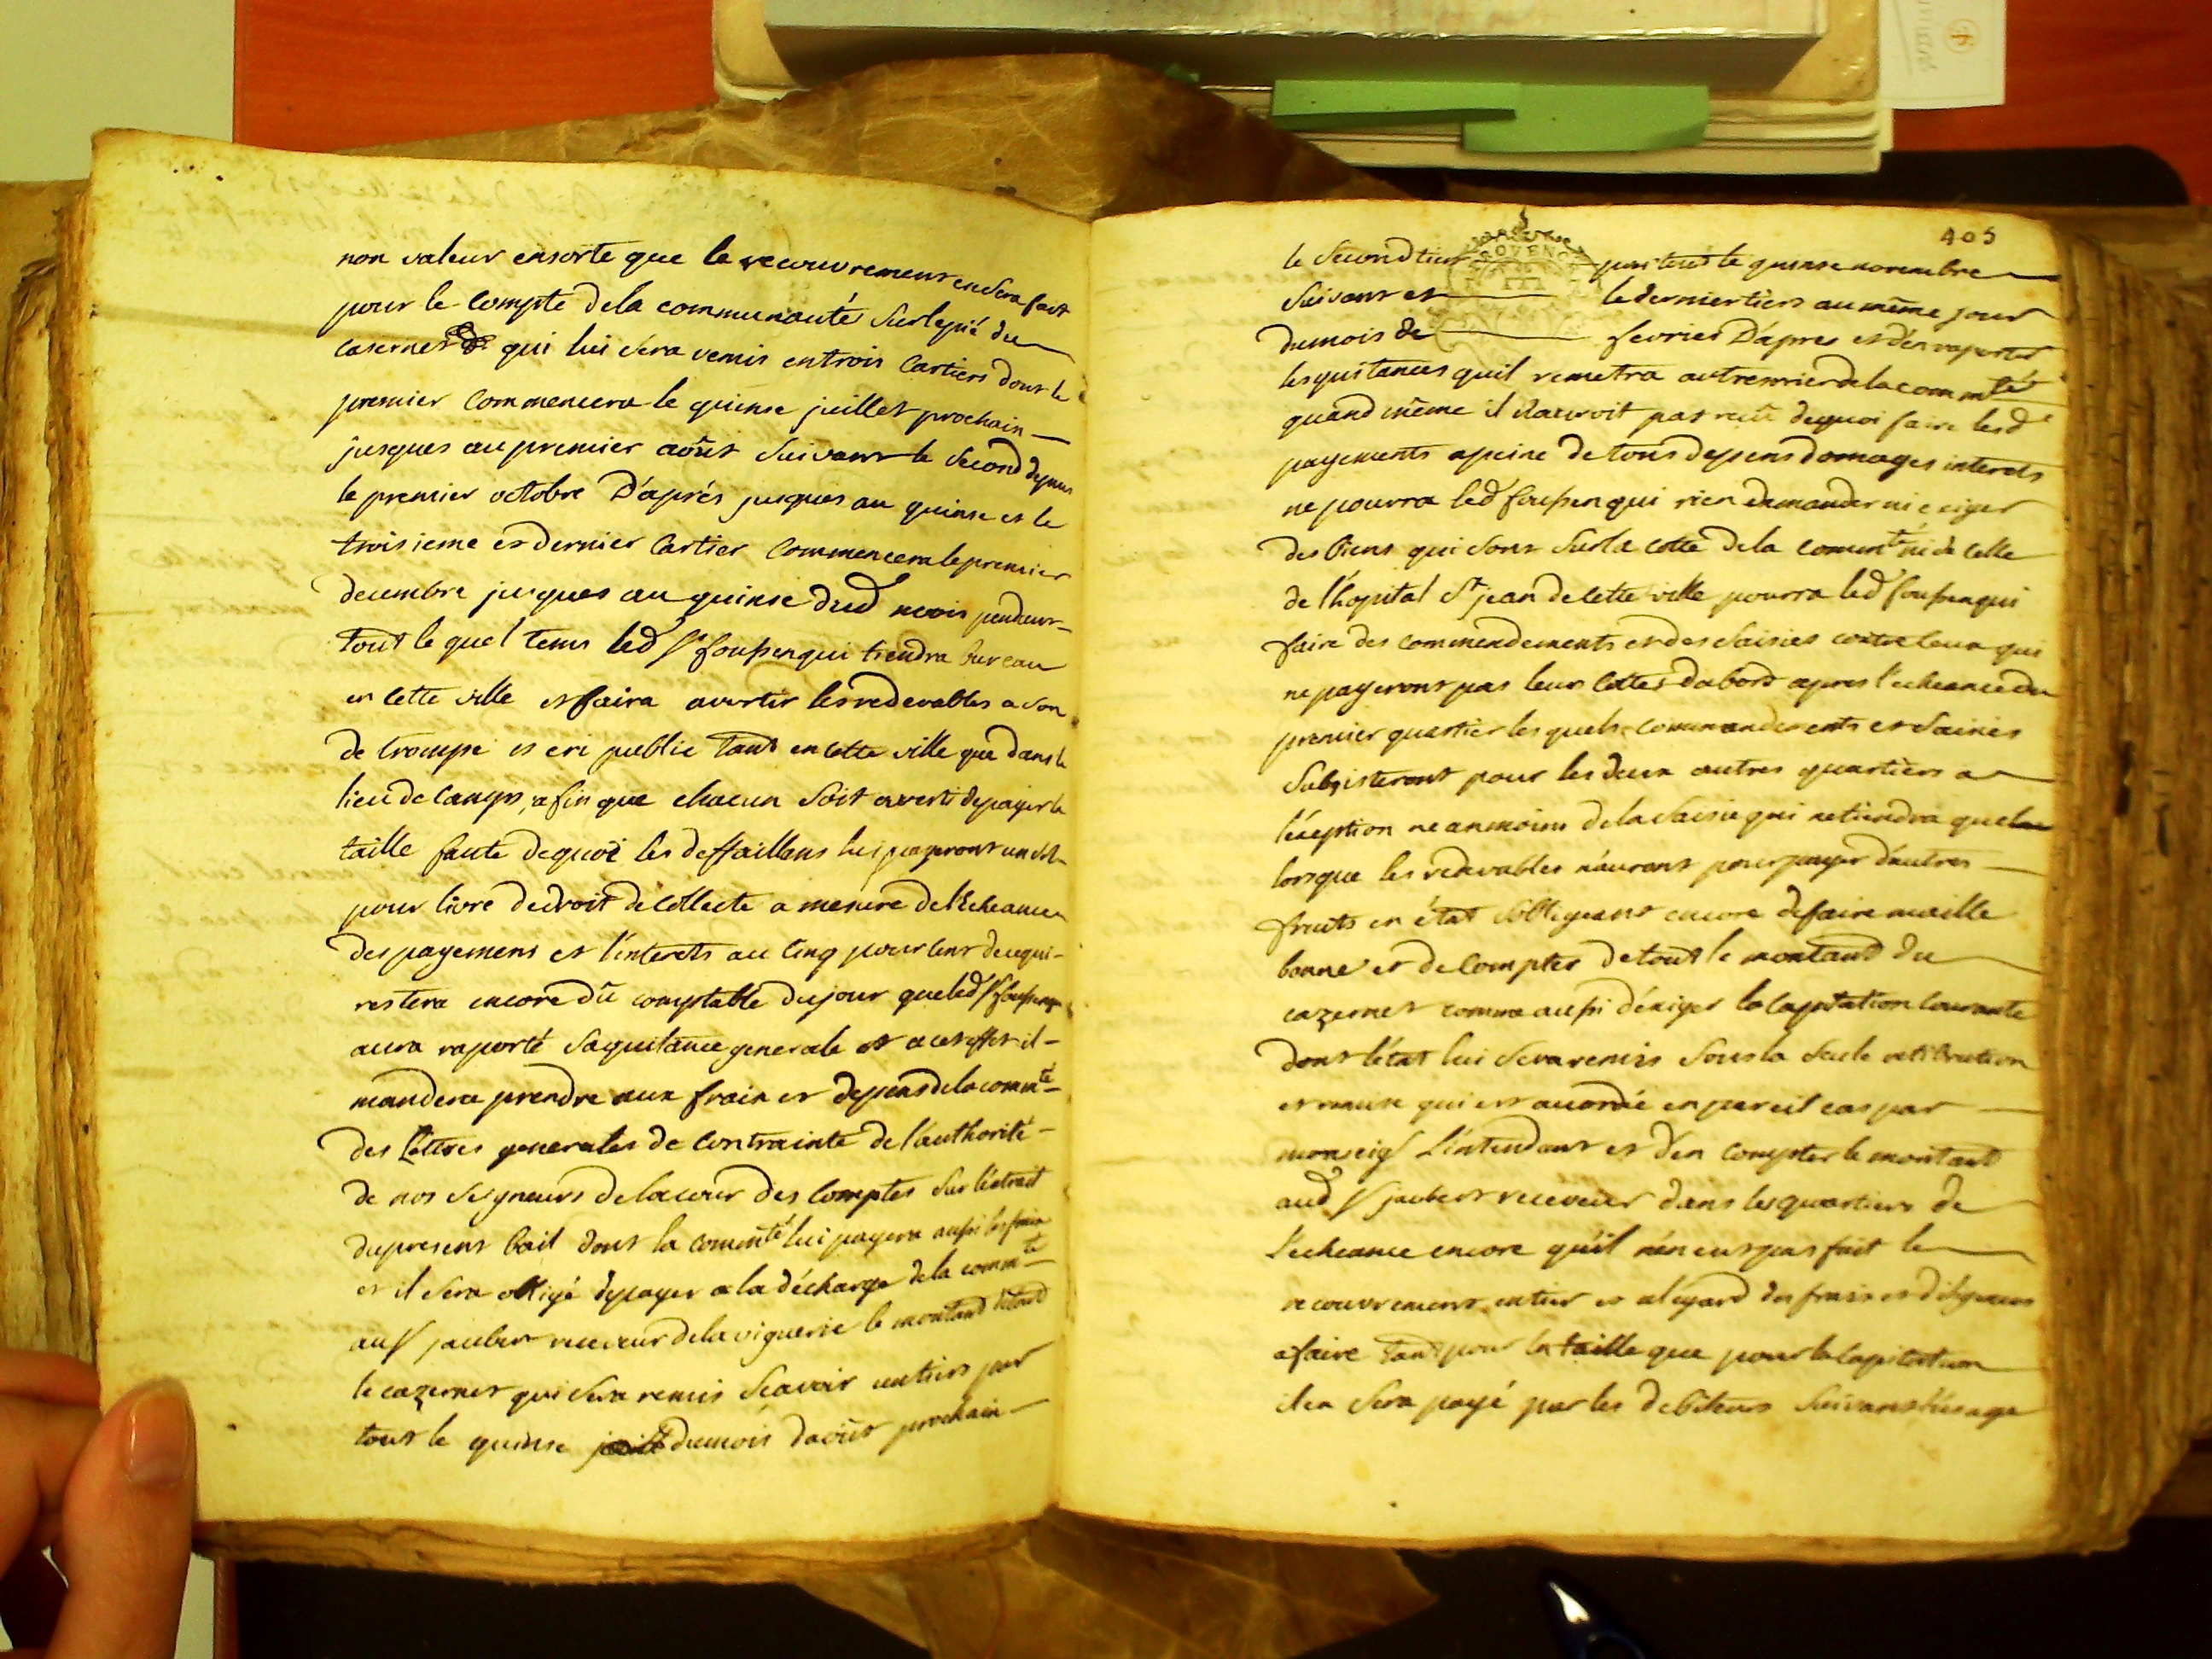 non valeur ensorte que le recouvrement en sera fait
pour le compte dela communauté sur le pié du
casernet qui lui sera remis en trois cartiers dont le
premier commencera le quinse juillet prochain
jusques au premier août suivant le second depuis
le premier octobre d'aprés jusques au quinse et le
troisieme et dernier cartier commencera le premier
decembre jusques au quinse dud mois pendant
tout le quel tems led Sr foussenqui tiendra bureau
en cette ville et faira avertir les redevables a son
de trompe et cri public tant en cette ville que dans le
lieu de camps, afin que chacun soit averti depayer la
taille faute dequoi les deffaillans lui payeront un sol
pour livre dedroit de collecte a mesure de l'echeance
des payemens et l'interets au cinq pour cent de ce qui
restera encore dû comptable dujour que led Sr foussenqui
aura raporté saquitance generale et a cet effet il
mandera prendre aux frais et depens dela commté
des Lettres generales de contrainte de l'authorité
de nos seigneurs dela cour des comptes sur l'etrait
du present bail dont la commté lui payera aussi les frais
et il sera obligé depayer a la décharge dela commté
au Sr jaubert receveur dela viguerie le montand detoud
le cazernet qui sera remis scavoir un tiers par
tout le quinse dumois daoût prochain
405
le second tiers par tout le quinse novembre
PROVENCE
suivant et le dernier tiers au même jour
dumois de fevrier d'apres et d'en raporter
les quitances quil remetra au tresorier dela commté
quand même il n'auroit pas dequoi faire lesd
payements apeine de tous depens domages interets
ne pourra led foussenqui rien demander ni exiger
des biens qui sont sur la cotte dela comunté ni de celle
de l'hopital St jean de cette ville pourra led foussenqui
faire des commendements et des saisies contre ceux qui
ne payeront pas leurs cottes dabord apres l'echeance du
premier quartier les quels commandements et saisies
subsisteront pour les deux autres quartiers a
l'éxeption neanmoins dela saisie qui ne tiendra que
lorsque les redevables n'auront pour payer d'autres
fruits en état s'obligeant encore defaire maille
bonne et de compter detout le montand du
cazernet comme aussi d'éxiger la capitation courante
dont l'état lui sera remis sous la seule retribution
et remise qui est accordée en pareil cas par
monseigr L'intendant et d'en compter le montant
aud Sr jaubert receveur dans les quartiers de
L'echeance encore qu'il n'en eut pas fait le
recouvrement entier et al'egard des frais et diligences
afaire tant pour la taille que pour la capitation
il en sera payé par les debiteurs suivant l'usage